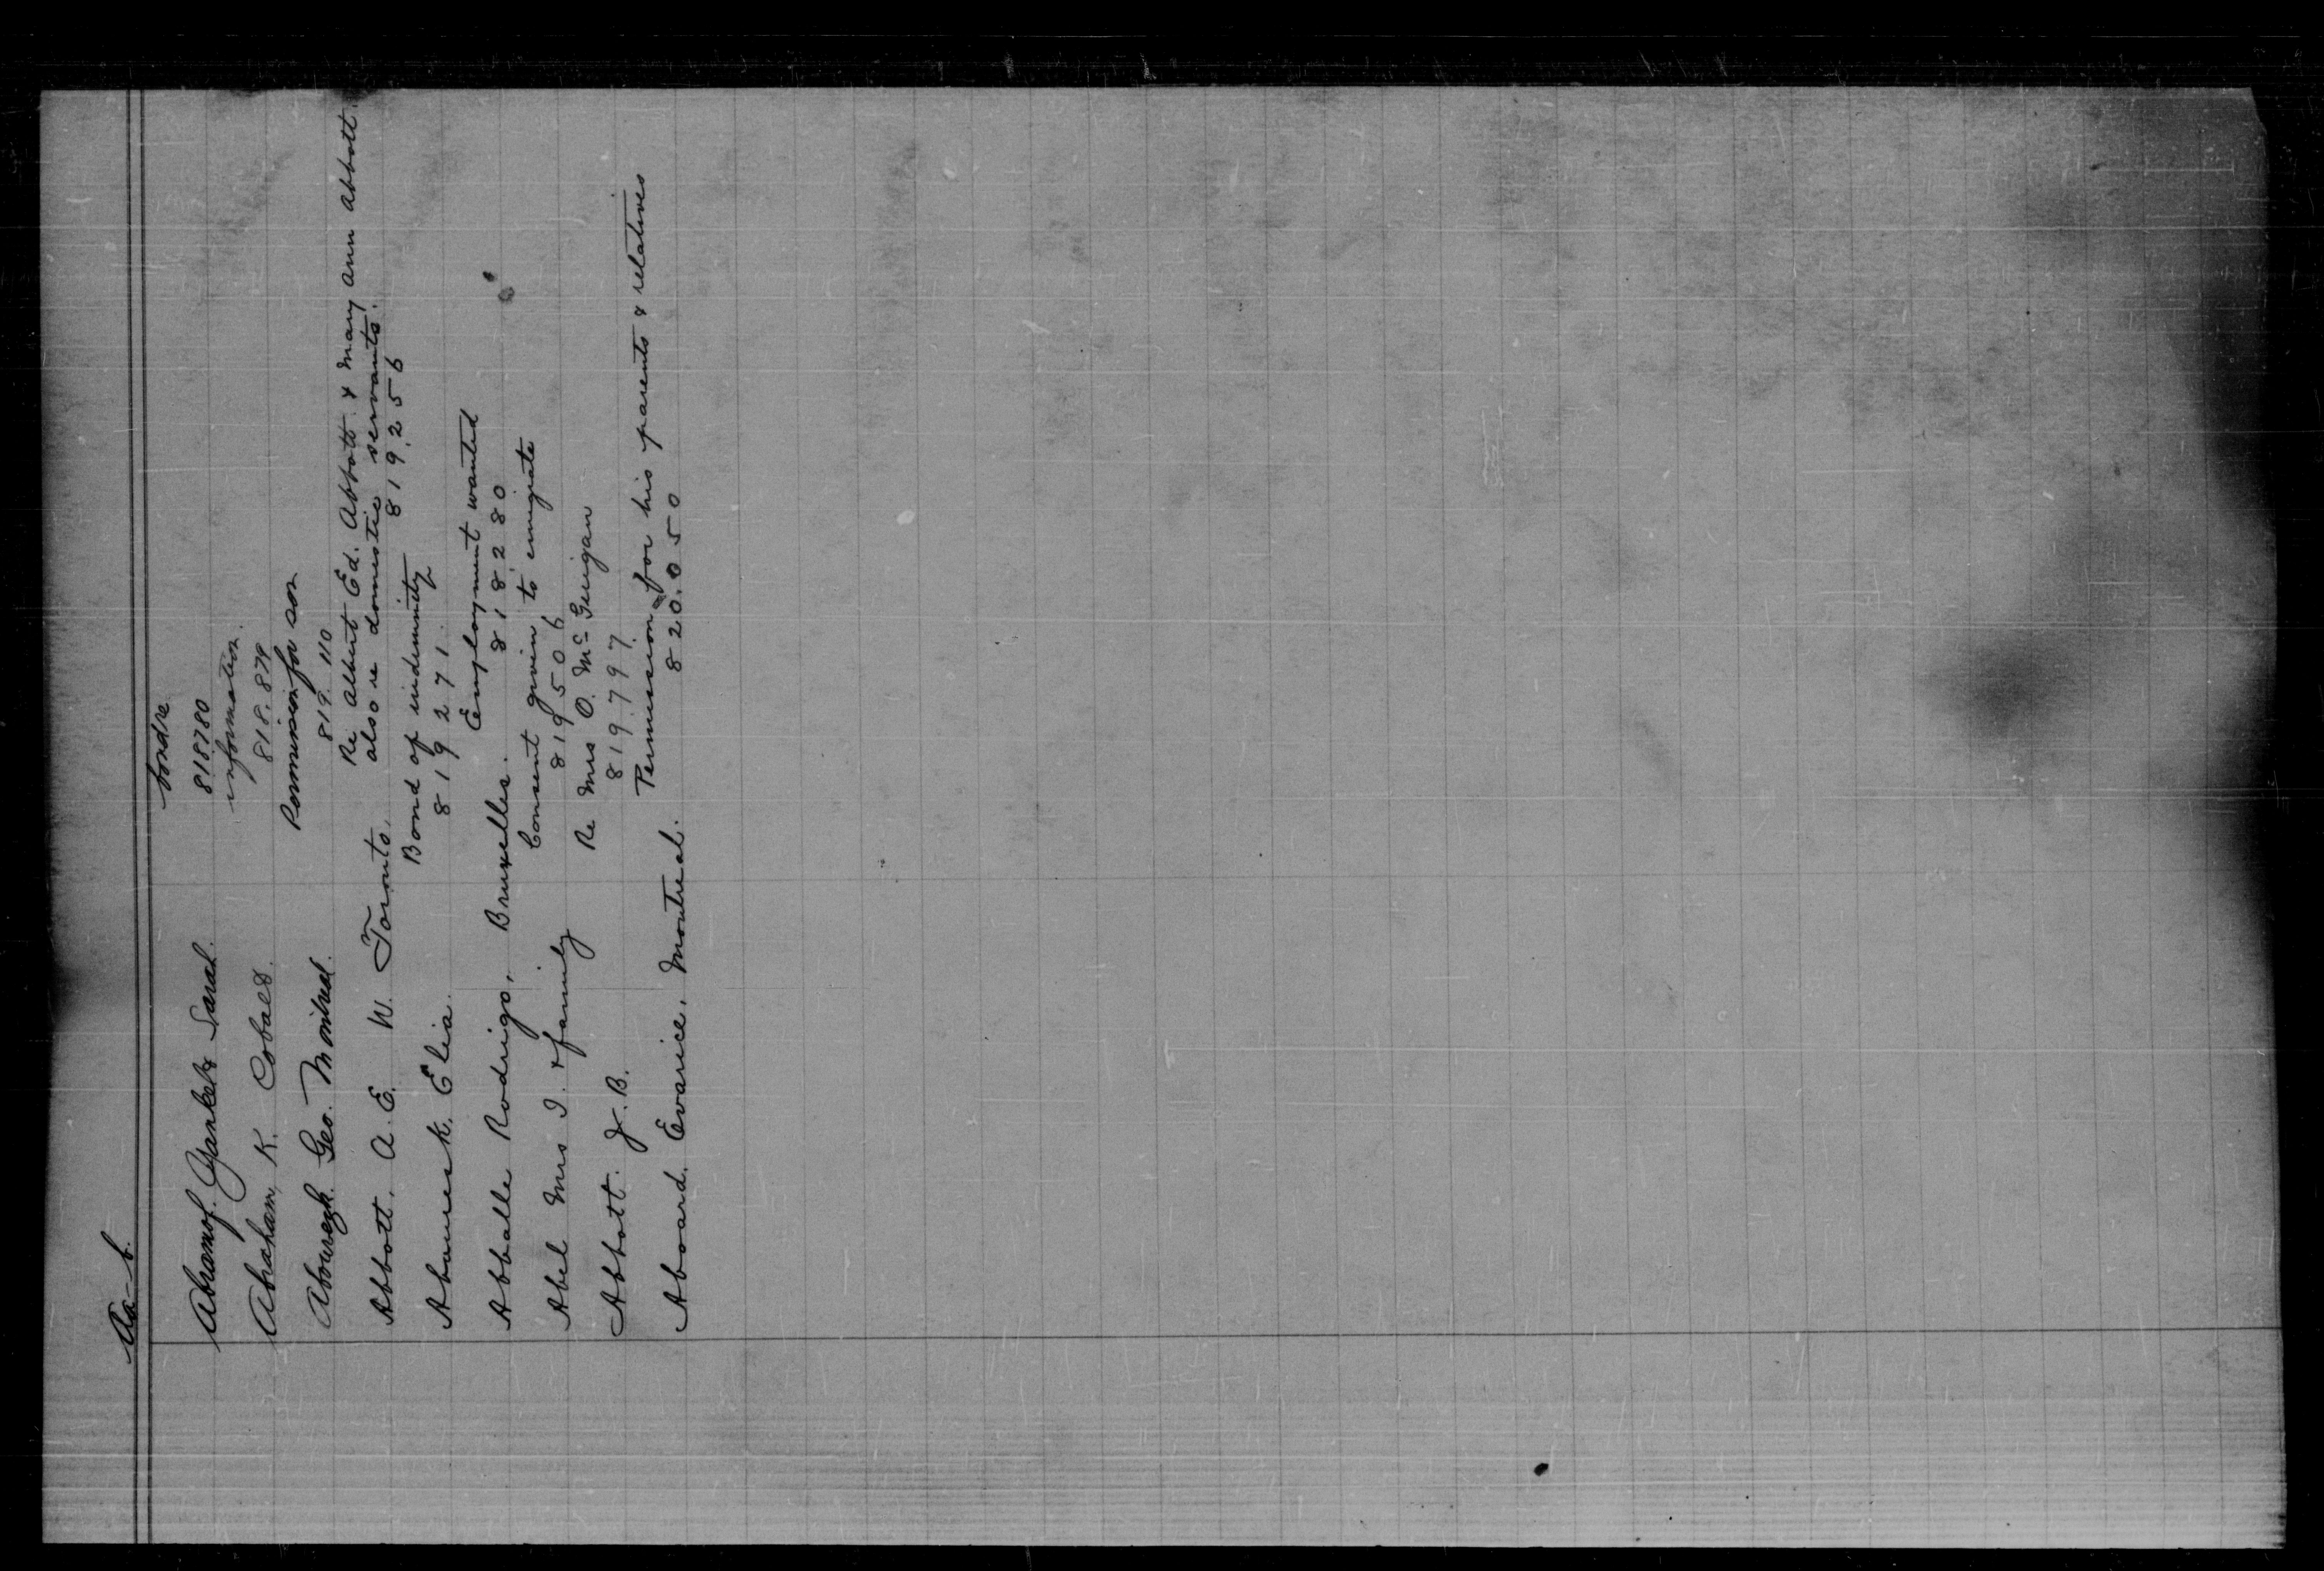 Aa-b.
Abramof. Yankel & Sarah. bond re
818780
Abraham, K. Cobalt. information.
818.879
Abourezk. Geo. Montreal. Permission for son
819.110
Abbott. A. E. W. Toronto. Re Albert Ed. Abbott & Mary Ann Abbott.
also re domestic servants.
819.256
Elia. Bond of indemnity
819271.
Abballe Rodrigo, Bruxelles. Employment wanted
818280
Abel Mrs I. & family Consent given to emigrate
819506
Abbott. J. B. Re Mrs O. McGuigan
819.797.
Aboard. Evarice, Montreal. Permission for his parents & relatives
820.050